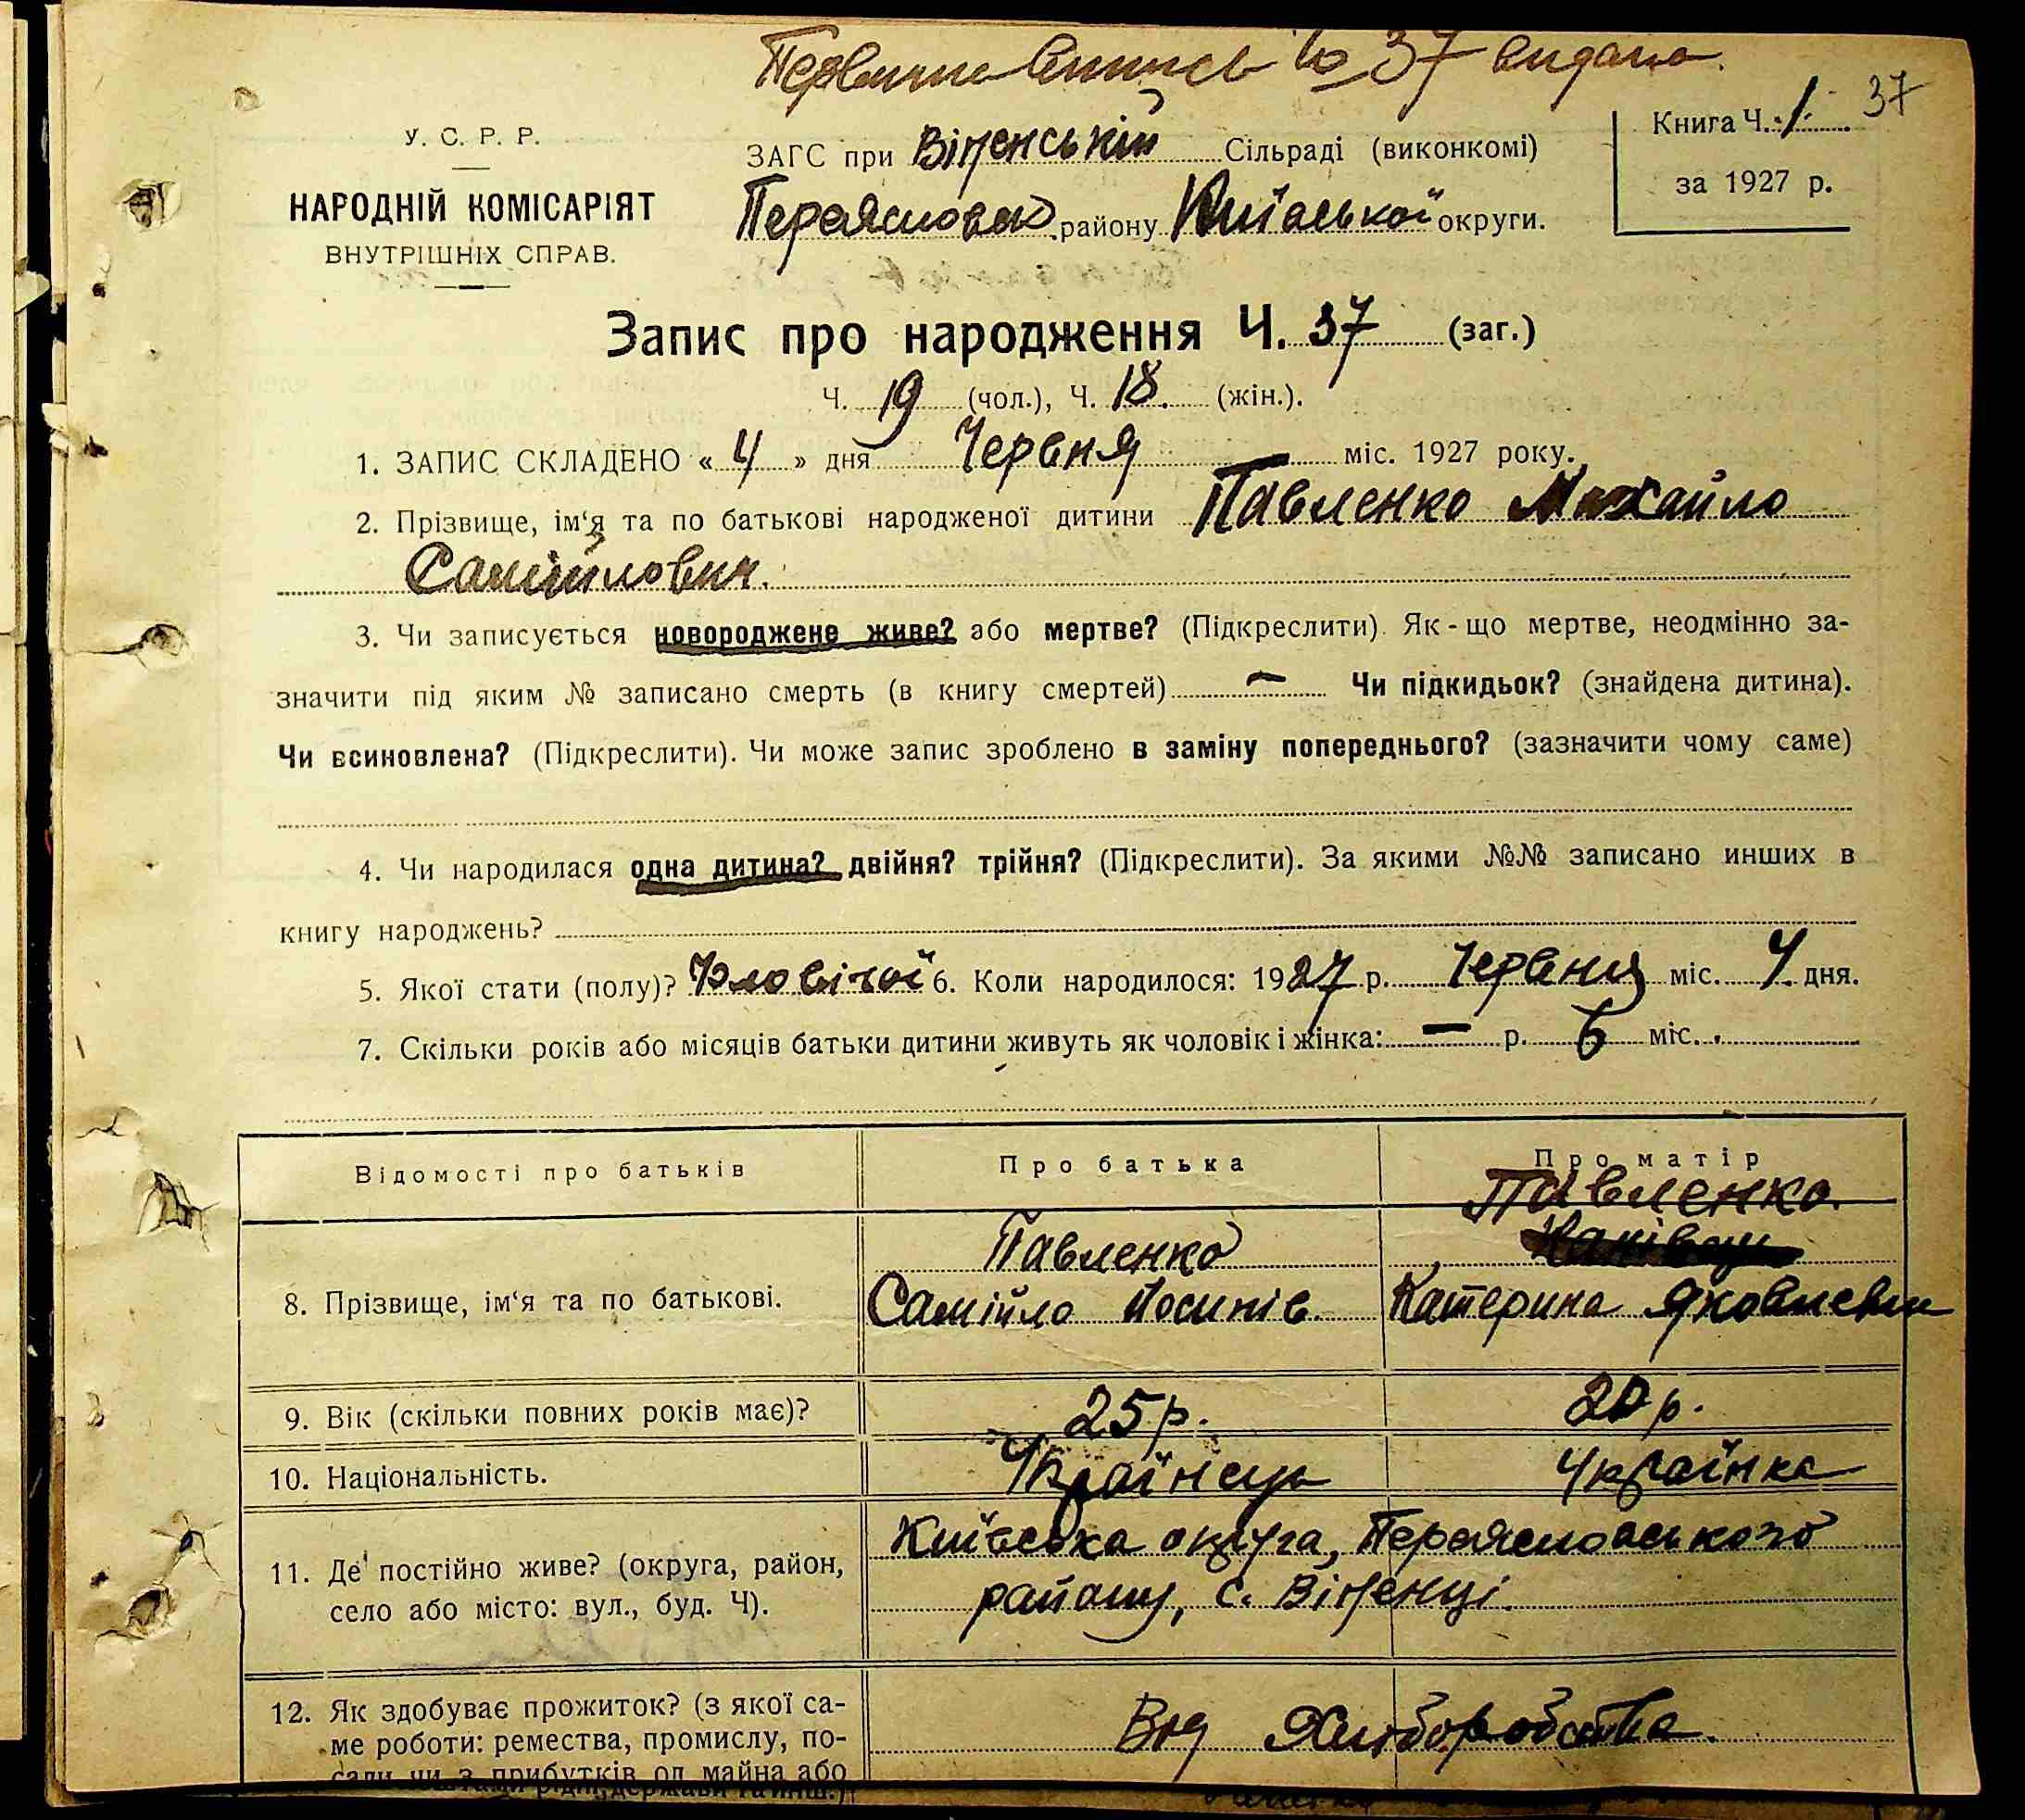 Первична випись № 37 видана.
37
У. С. Р. Р.
НАРОДНІЙ КОМІСАРІЯТ
ВНУТРІШНІХ СПРАВ.
ЗАГС при Віненській Сільраді (виконкомі)
Переясловськ. району Київської округи.
Книга Ч. 1.
за 1927 р.
Запис про народження Ч. 37 (заг.)
Ч. 19 (чол.), Ч. 18. (жін.).
1. ЗАПИС СКЛАДЕНО « 4 » дня Червня міс. 1927 року.
2. Прізвище, ім‘я та по батькові народженої дитини Павленко Михайло
Самійлович.
3. Чи записується новороджене живе? або мертве? (Підкреслити). Як-що мертве, неодмінно за-
значити під яким № записано смерть (в книгу смертей) — Чи підкидьок? (знайдена дитина).
Чи всиновлена? (Підкреслити). Чи може запис зроблено в заміну попереднього? (зазначити чому саме)
4. Чи народилася одна дитина? двійня? трійня? (Підкреслити). За якими №№ записано инших в
книгу народжень?
5. Якої стати (полу)? Чоловічої 6. Коли народилося: 1927 р. Червня міс. 4 дня.
7. Скільки років або місяців батьки дитини живуть як чоловік і жінка: — р. 6 міс.
Відомості про батьків
Про батька
Про матір
8. Прізвище, ім‘я та по батькові.
Павленко
Самійло Йосипів
Павленко
Катерина Яковлевни
9. Вік (скільки повних років має)?
25 р.
20 р.
10. Національність.
Українець
Українка
11. Де постійно живе? (округа, район,
село або місто: вул., буд. Ч).
Київська округа, Переясловського
району, с. Віненці.
12. Як здобуває прожиток? (з якої са-
ме роботи: ремества, промислу, по-
сади чи з прибутків од майна або
Від Хліборобства.